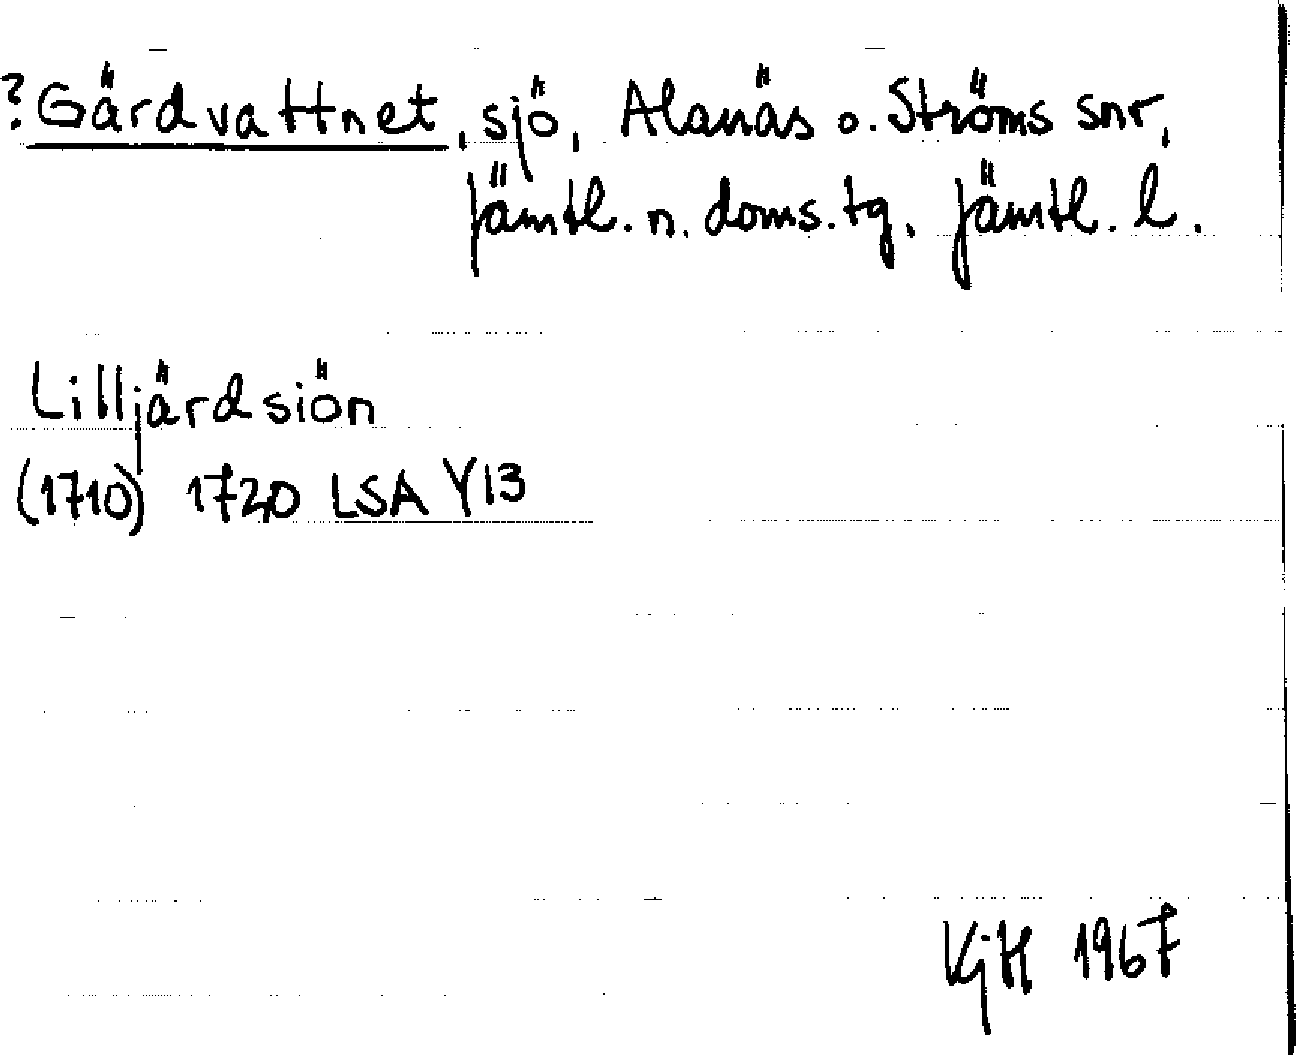 ?Gärdvattnet, sjö, Alanäs o. Ströms snr,
Jämtl. n. doms.tg, Jämtl. l.
Lilljärdsiön
(1710) 1720 LSA Y13
KjH 1967